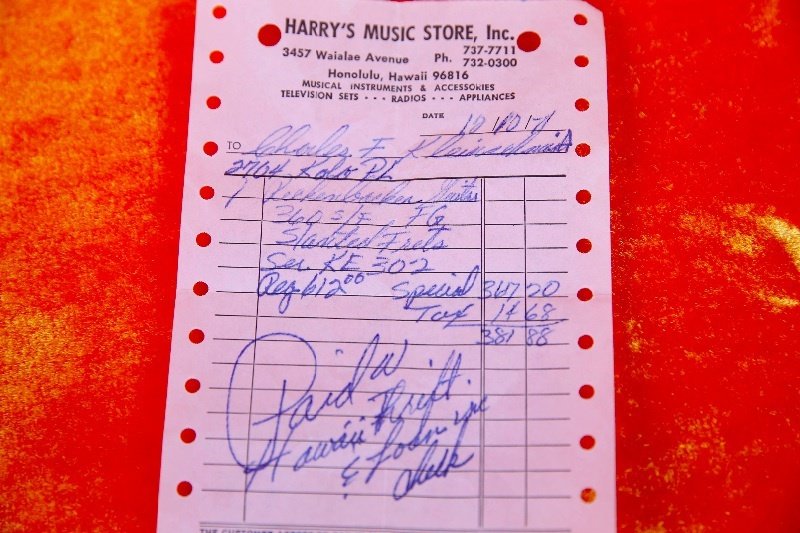 HARRY'S MUSIC STORE, Inc.
737-7711
3457 Waialae Avenue Ph. 732-0300
Honolulu, Hawaii 96816
MUSICAL INSTRUMENTS & ACCESSORIES
TELEVISION SETS - - - RADIOS - - - APPLIANCES
DATE
TO Charles F. Kleinschmidt
2704 Kolo Pl.
1 Guitar
360 FG
Slanted Frets
Ser. KE 302
Reg 612.00 Special 367 20
Tax 14 68
381 88
Paid w
Hawaii Thrift
& Loan inc
check